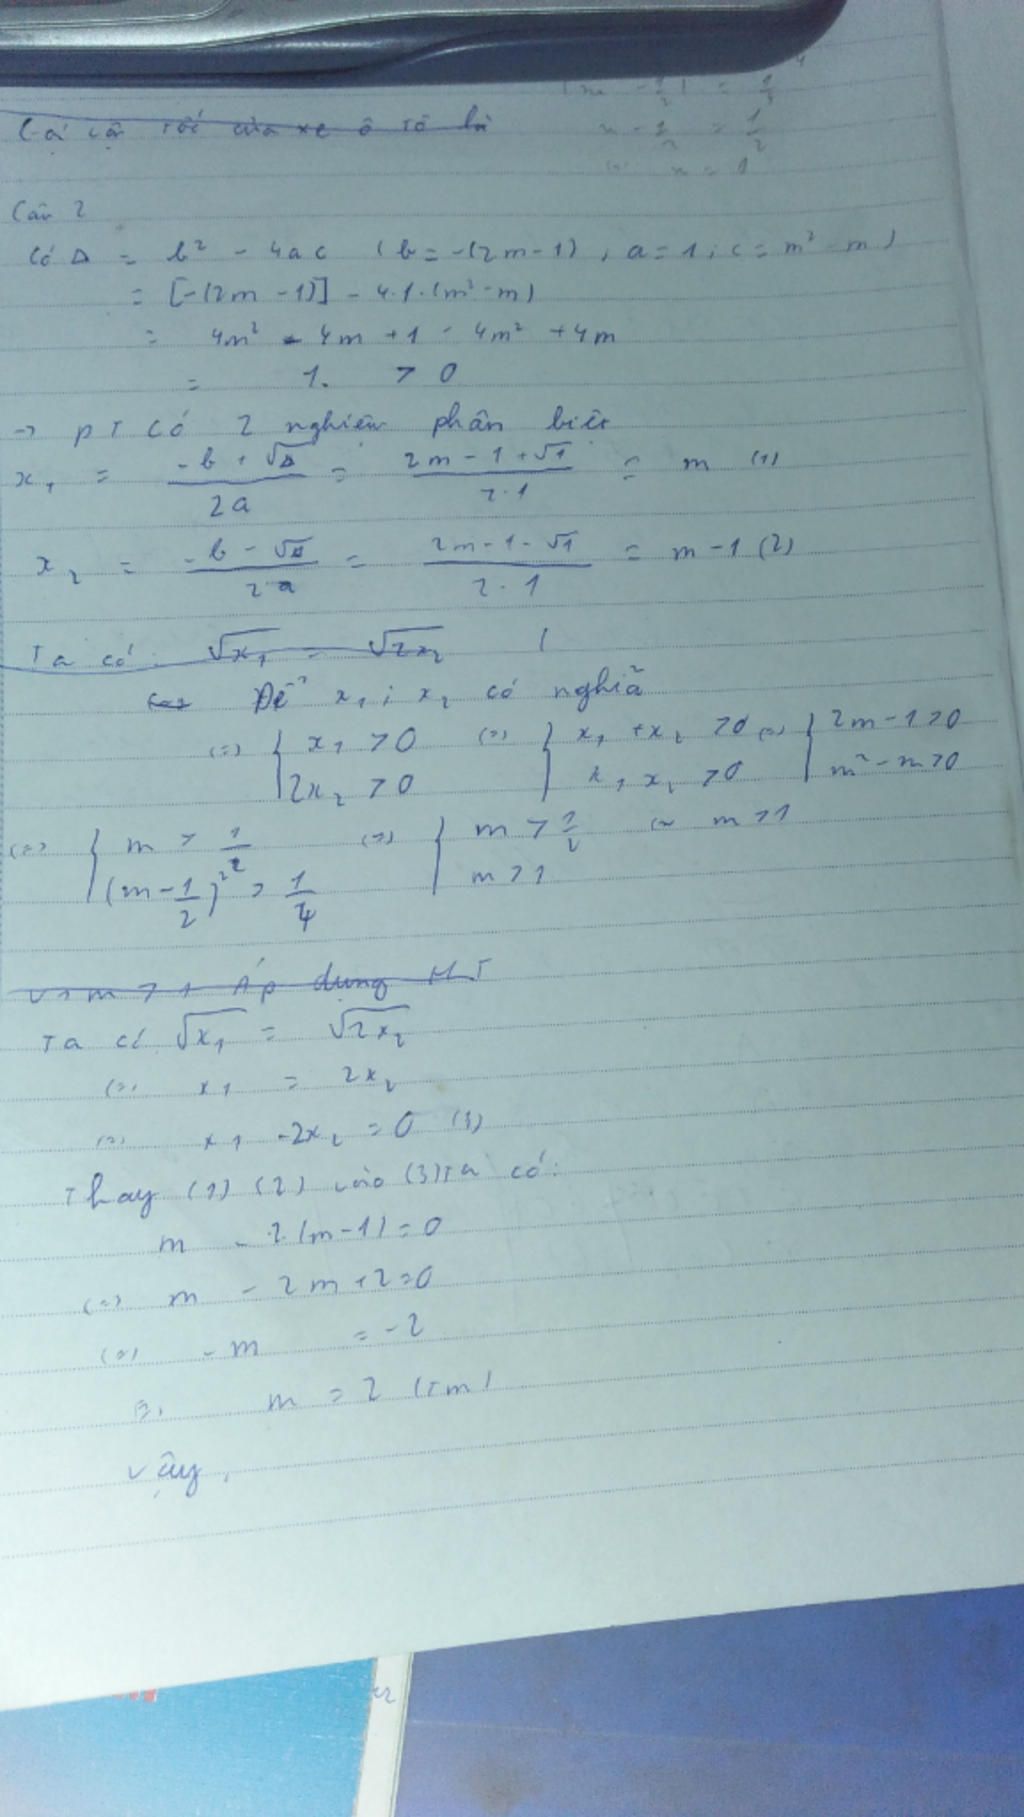 Gọi vận tốc của xe ô tô là
Câu 2
Có Δ = b² - 4ac (b = -(2m-1), a = 1; c = m² - m)
= [-(2m-1)] - 4.1.(m² - m)
= 4m² - 4m + 1 - 4m² + 4m
= 1. > 0
→ PT có 2 nghiệm phân biệt
x₁ = (-b + √Δ)/2a = (2m - 1 + √1)/2.1 = m (1)
x₂ = (-b - √Δ)/2a = (2m - 1 - √1)/2.1 = m - 1 (2)
Ta có: √x₁ = √2x₂
Để x₁; x₂ có nghĩa
(=) { x₁ > 0; 2x₂ > 0 (=) { x₁ + x₂ > 0; x₁x₂ > 0 (=) { 2m - 1 > 0; m² - m > 0
(=) { m > 1/2; (m - 1/2)² > 1/4 (=) { m > 1/2; m > 1 (=) m > 1
Với m > 1 Áp dụng HT
Ta có √x₁ = √2x₂
(=) x₁ = 2x₂
(=) x₁ - 2x₂ = 0 (3)
Thay (1) (2) vào (3) Ta có:
m - 2(m-1) = 0
(=) m - 2m + 2 = 0
(=) -m = -2
(=) m = 2 (Tm)
Vậy.